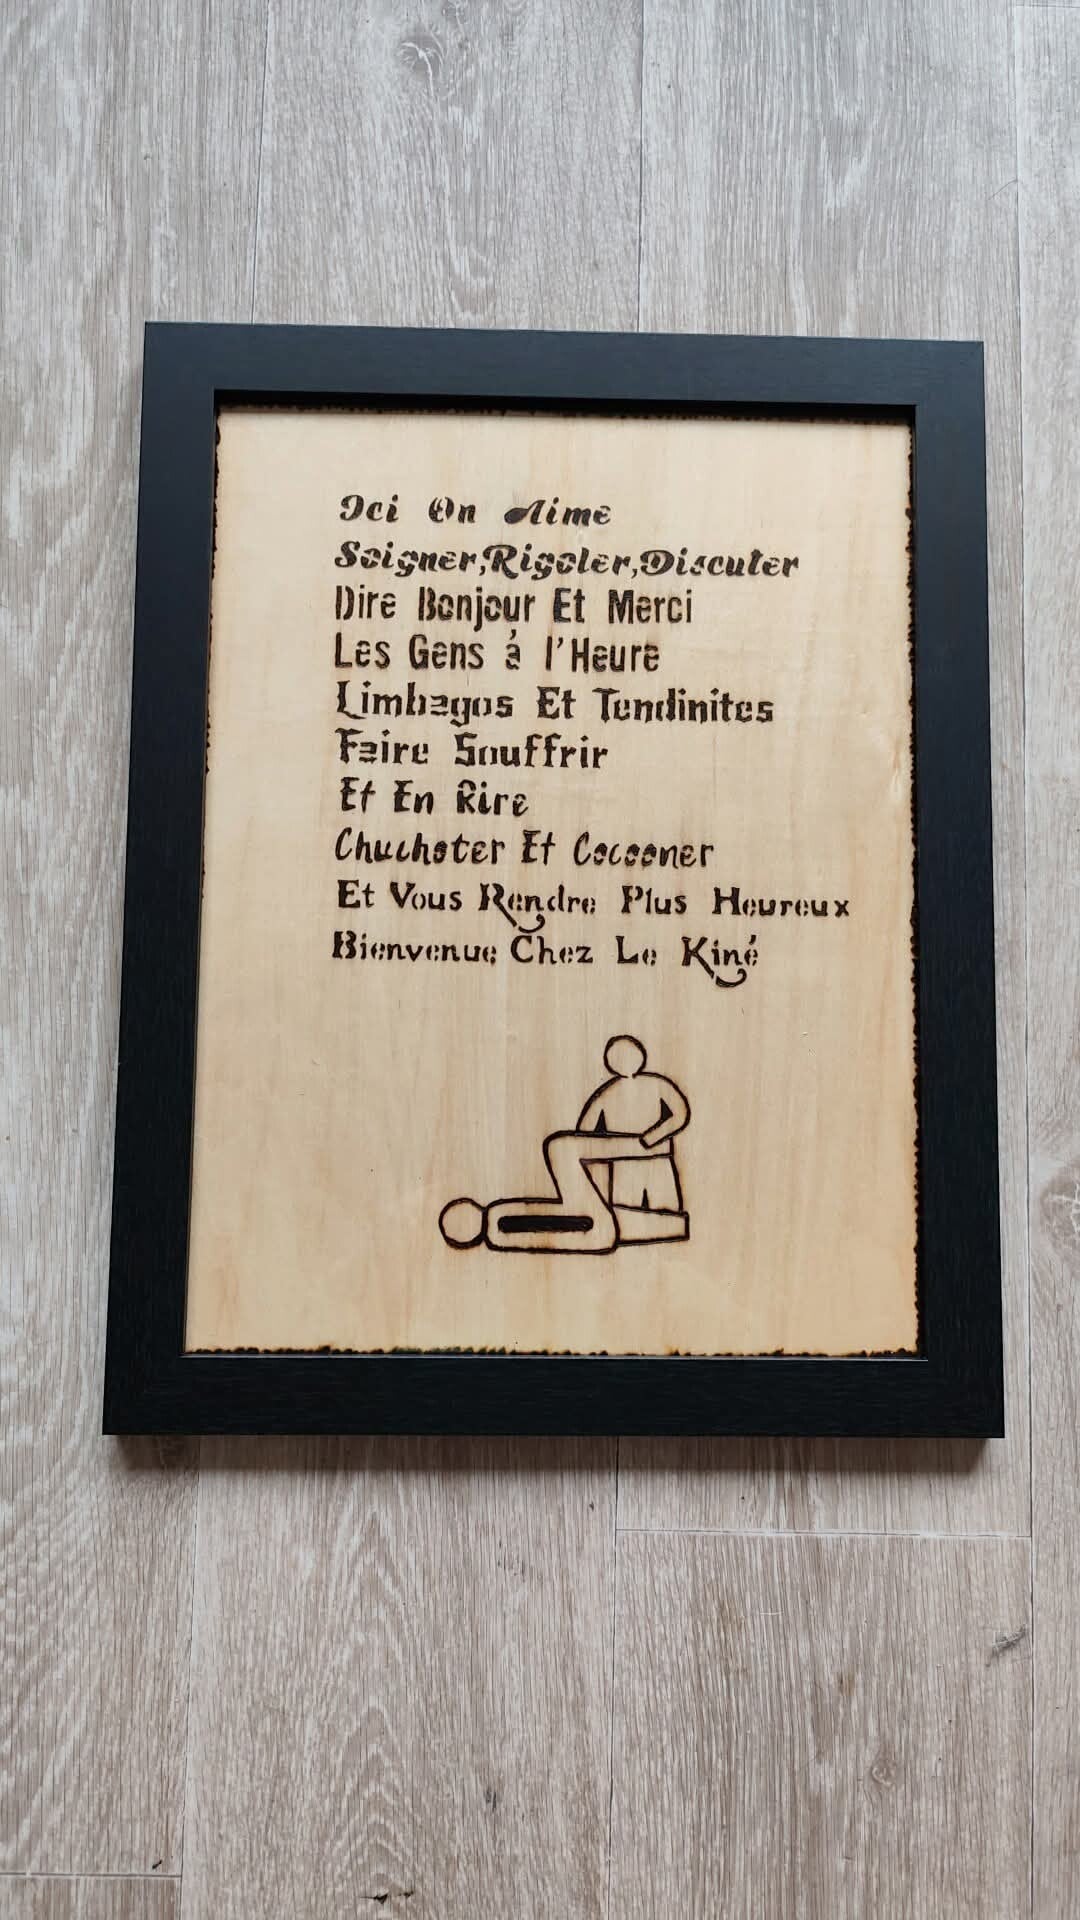 Ici On Aime
Soigner,Rigoler,Discuter
Dire Bonjour Et Merci
Les Gens à l'Heure
Limbagos Et Tendinites
Faire Souffrir
Et En Rire
Chuchoter Et Cocooner
Et Vous Rendre Plus Heureux
Bienvenue Chez Le Kiné